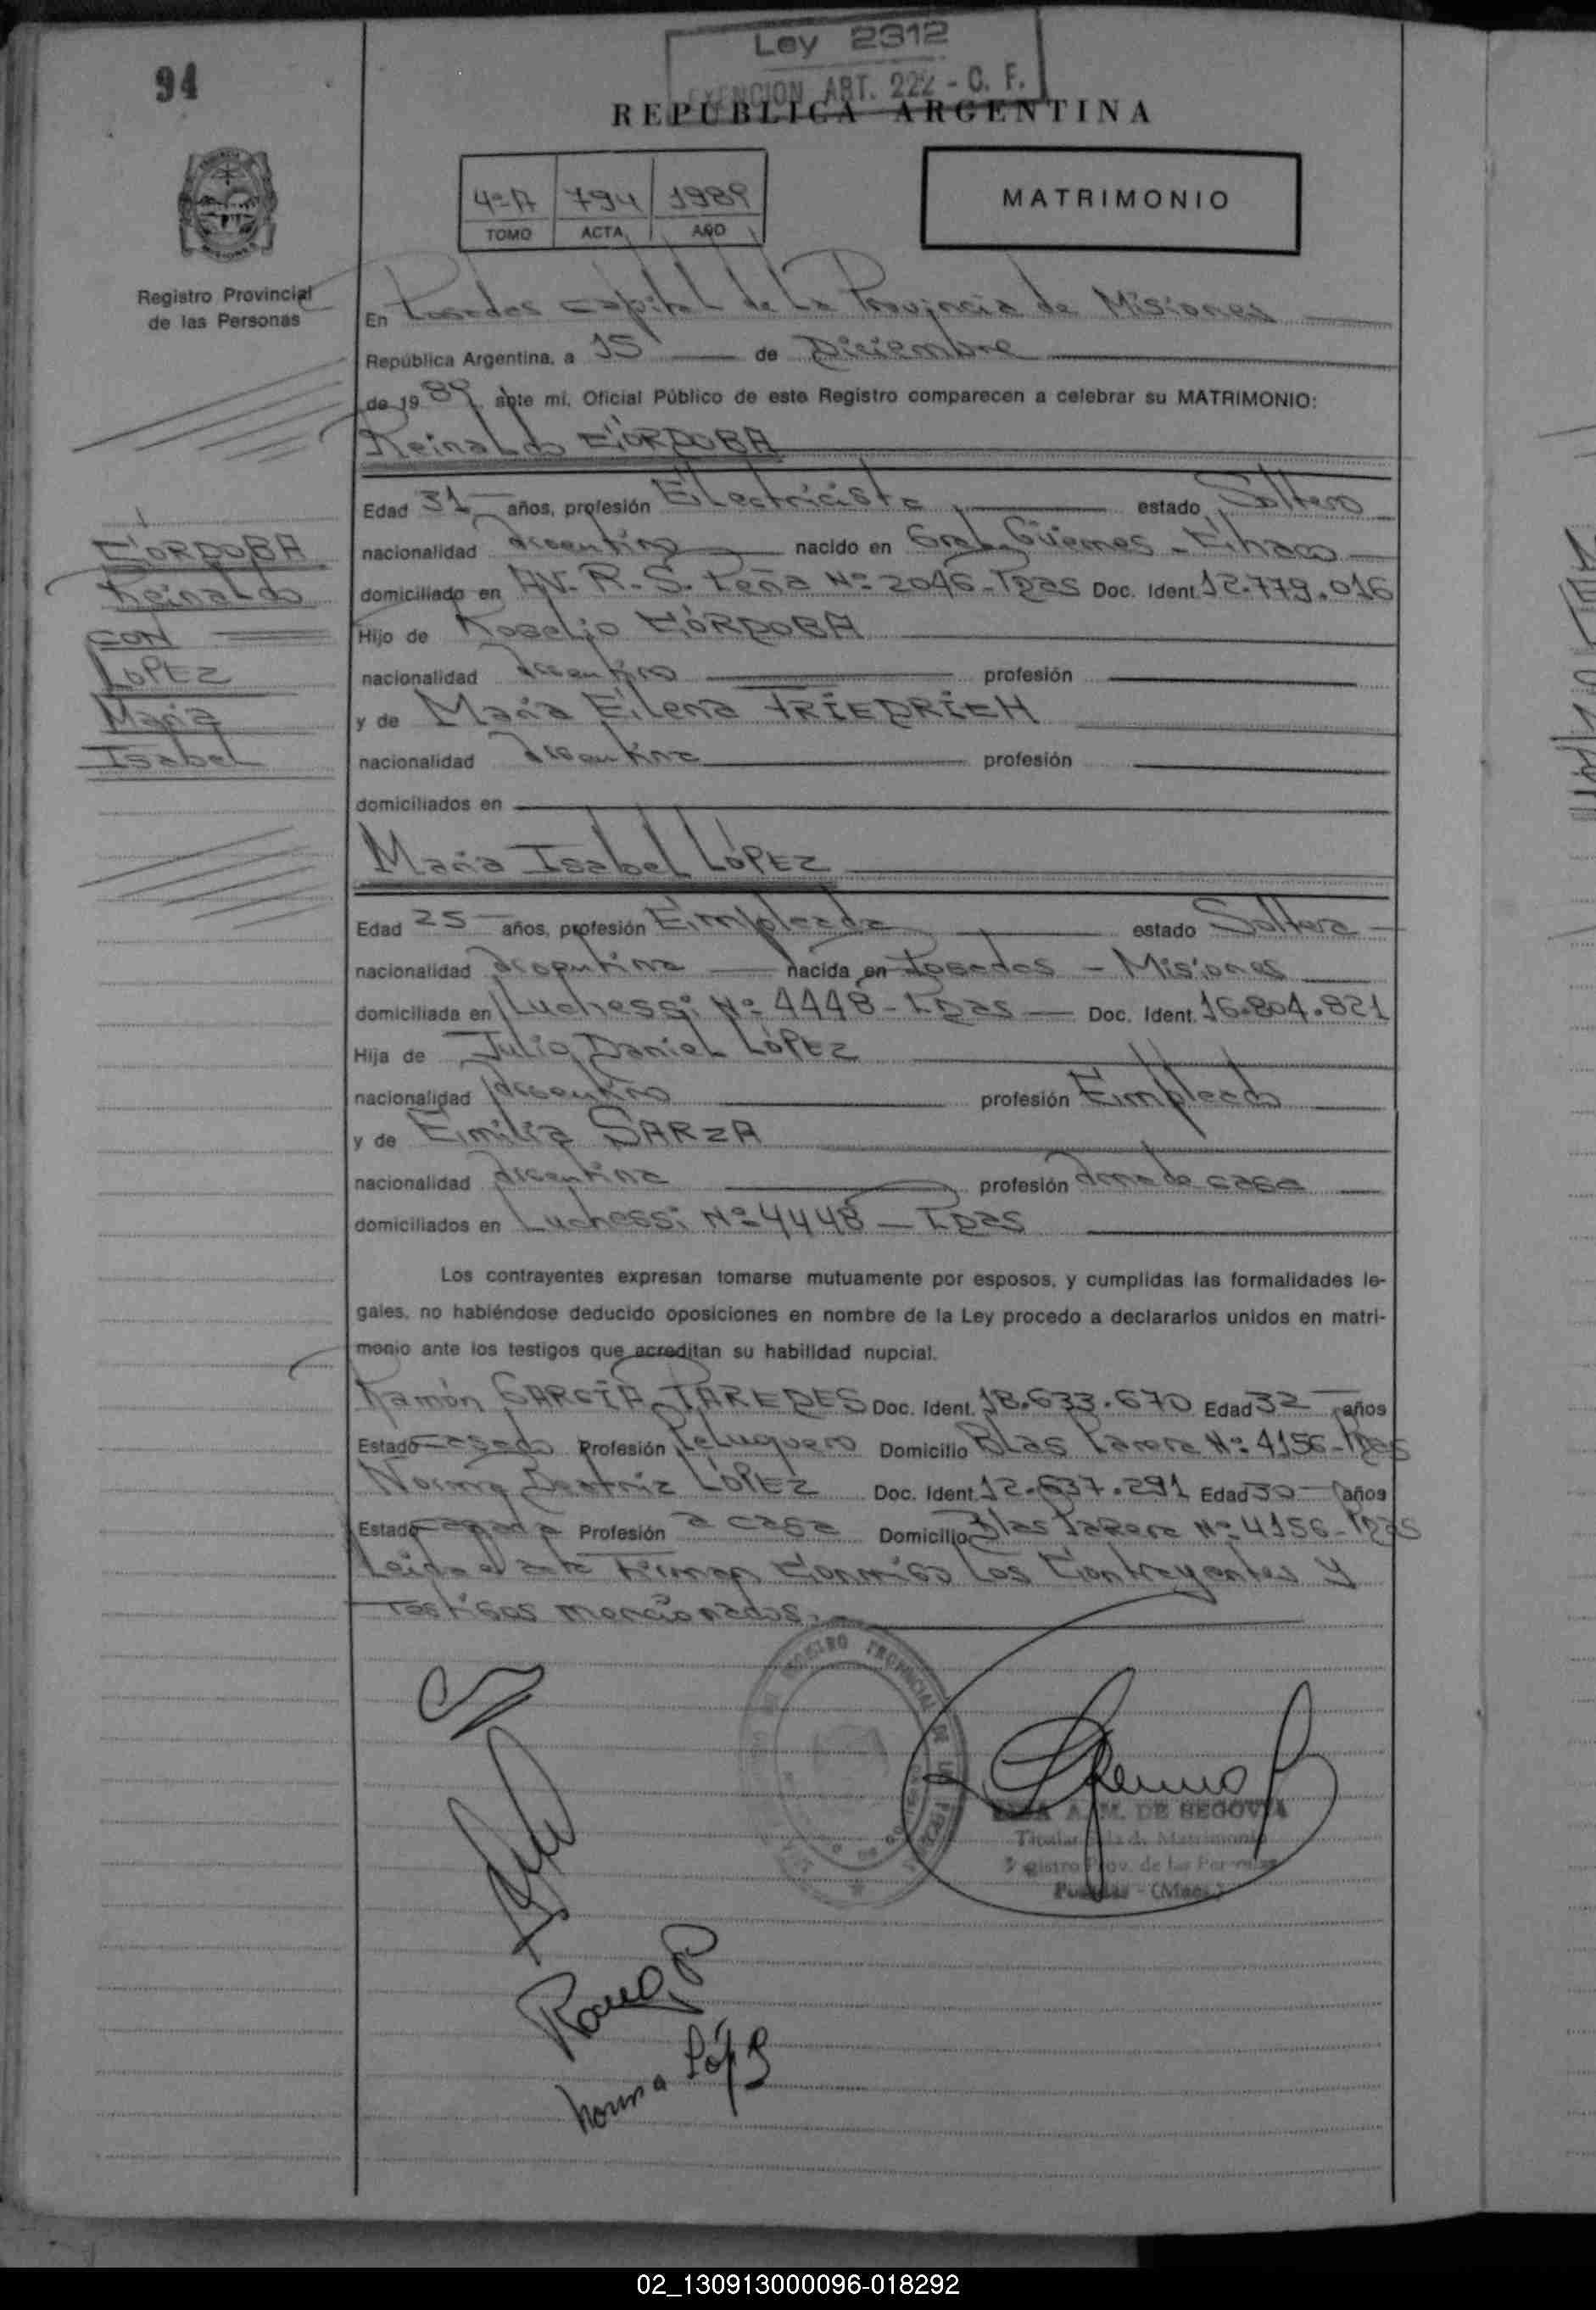 Ley 2312
EXENCION ART. 222 - C. F.
94
REPUBLICA ARGENTINA
4º A 794 1989
TOMO ACTA AÑO
MATRIMONIO
Registro Provincial
de las Personas
En Posadas capital de la Provincia de Misiones
República Argentina, a 15 de Diciembre
de 1989, ante mí, Oficial Público de este Registro comparecen a celebrar su MATRIMONIO:
Reinaldo CÓRDOBA
Edad 31 años, profesión Electricista estado Soltero
nacionalidad Argentino nacido en Gral. Güemes - Chaco
domiciliado en AV. R. S. Peña Nº 2046 - Pdas Doc. Ident. 12.779.016
Hijo de Rogelio CÓRDOBA
nacionalidad Argentino profesión
y de María Elena FRIEDRICH
nacionalidad Argentina profesión
domiciliados en
CÓRDOBA
Reinaldo
CON
LOPEZ
María
Isabel
María Isabel LÓPEZ
Edad 25 años, profesión Empleada estado Soltera
nacionalidad Argentina nacida en Posadas - Misiones
domiciliada en Luchessi Nº 4448 - Pdas Doc. Ident. 16.804.821
Hija de Julio Daniel LÓPEZ
nacionalidad Argentino profesión Empleado
y de Emilia SARZA
nacionalidad Argentina profesión ama de casa
domiciliados en Luchessi Nº 4448 - Pdas
Los contrayentes expresan tomarse mutuamente por esposos, y cumplidas las formalidades le-
gales, no habiéndose deducido oposiciones en nombre de la Ley procedo a declararlos unidos en matri-
monio ante los testigos que acreditan su habilidad nupcial.
Ramón GARCÍA PAREDES Doc. Ident. 18.633.670 Edad 32 años
Estado casado Profesión Peluquero Domicilio Blas Parera Nº 4156 - Pdas
Norma Beatriz LÓPEZ Doc. Ident. 12.637.291 Edad 30 años
Estado casada Profesión a casa Domicilio Blas Parera Nº 4156 - Pdas
Leída el acta Firman Conmigo los Contrayentes y
Testigos mencionados.
REGISTRO PROVINCIAL DE LAS PERSONAS
A. M. DE SEGOVIA
Titular Sala de Matrimonio
Registro Prov. de las Personas
Posadas - (Mnes.)
Norma Lóp
02_130913000096-018292